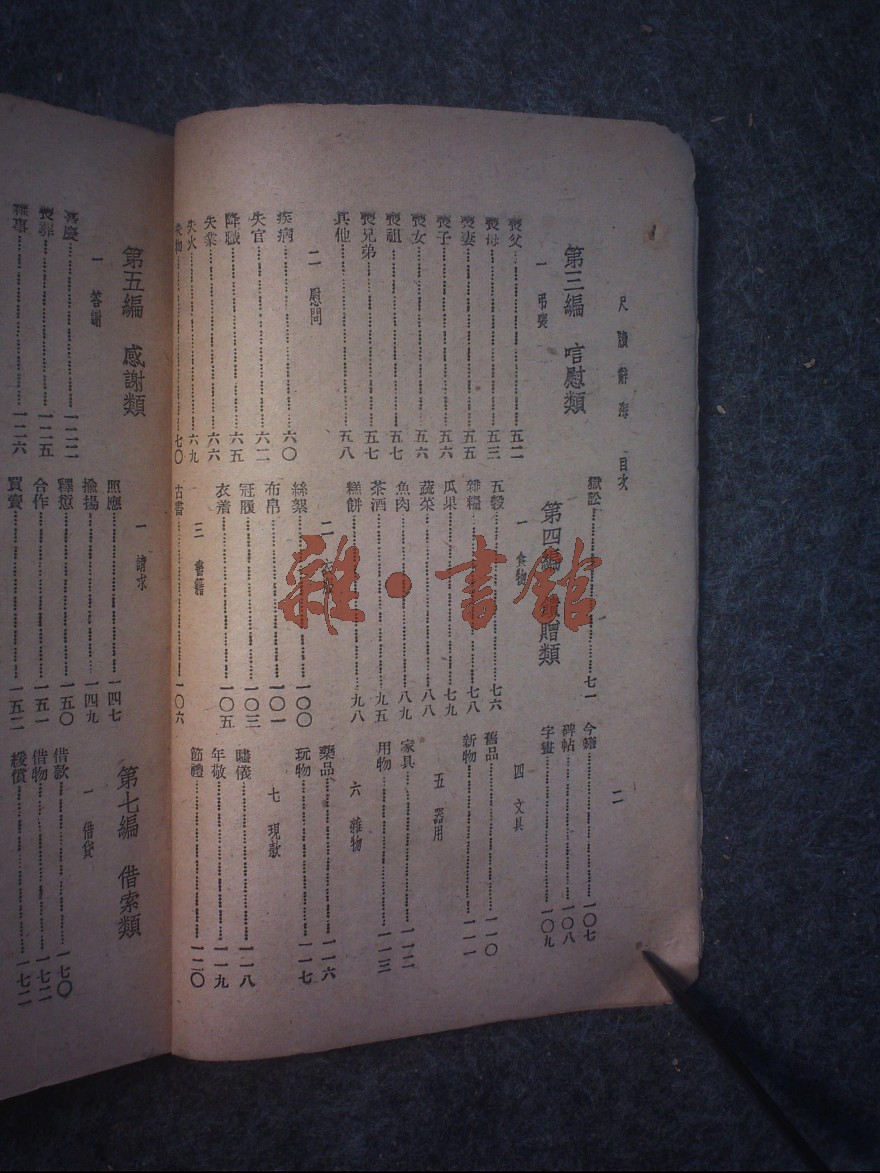 尺牘辭海 目次
二
第三編 唁慰類
一 弔喪
喪父……五二
喪母……五三
喪妻……五五
喪子……五六
喪女……五六
喪祖……五七
喪兄弟……五七
其他……五八
二 慰問
疾病……六〇
失官……六二
降職……六五
失業……六六
失火……六九
失物……七〇
獄訟……七一
第四編 贈類
一 食物
五穀……七六
雜糧……七八
瓜果……七九
蔬菜……八八
魚肉……八九
茶酒……九五
糕餅……九八
二
絲絮……一〇〇
布帛……一〇一
冠履……一〇三
衣着……一〇五
三 書籍
古書……一〇六
今籍……一〇七
碑帖……一〇八
字畫……一〇九
四 文具
舊品……一一〇
新物……一一一
五 器用
家具……一一二
用物……一一三
六 雜物
藥品……一一六
玩物……一一七
七 現款
贐儀……一一八
年敬……一一九
節禮……一二〇
第五編 感謝類
一 答謝
喜慶……一二二
喪葬……一二五
……一二六
一 請求
照應……一四七
揄揚……一四九
釋愆……一五〇
合作……一五一
買賣……一五二
第七編 借索類
一 借貸
借款……一七〇
借物……一七二
緩償……一七二
雜·書館